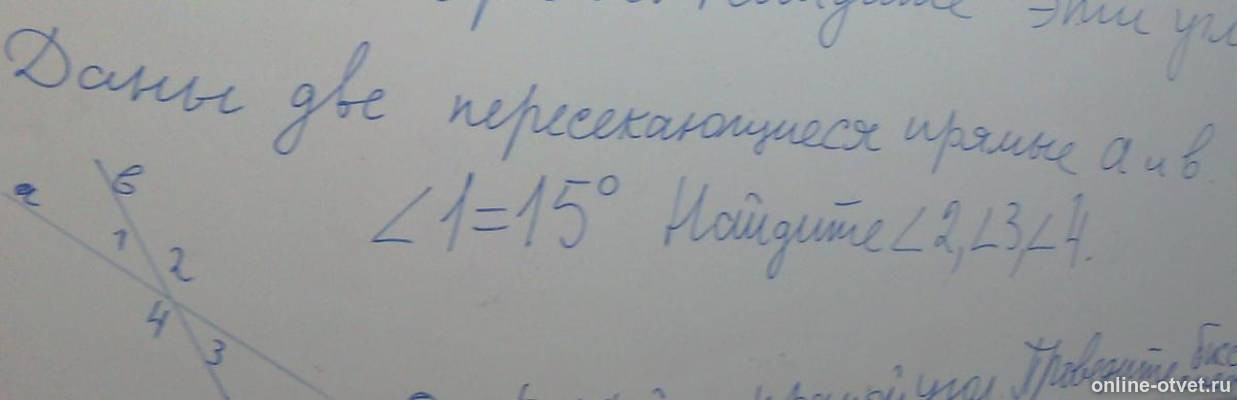 эти
Даны две пересекающиеся прямые a и в.
∠1=15° Найдите ∠2,∠3,∠4.
a в
1 2
4 3
угол Проведите
online-otvet.ru